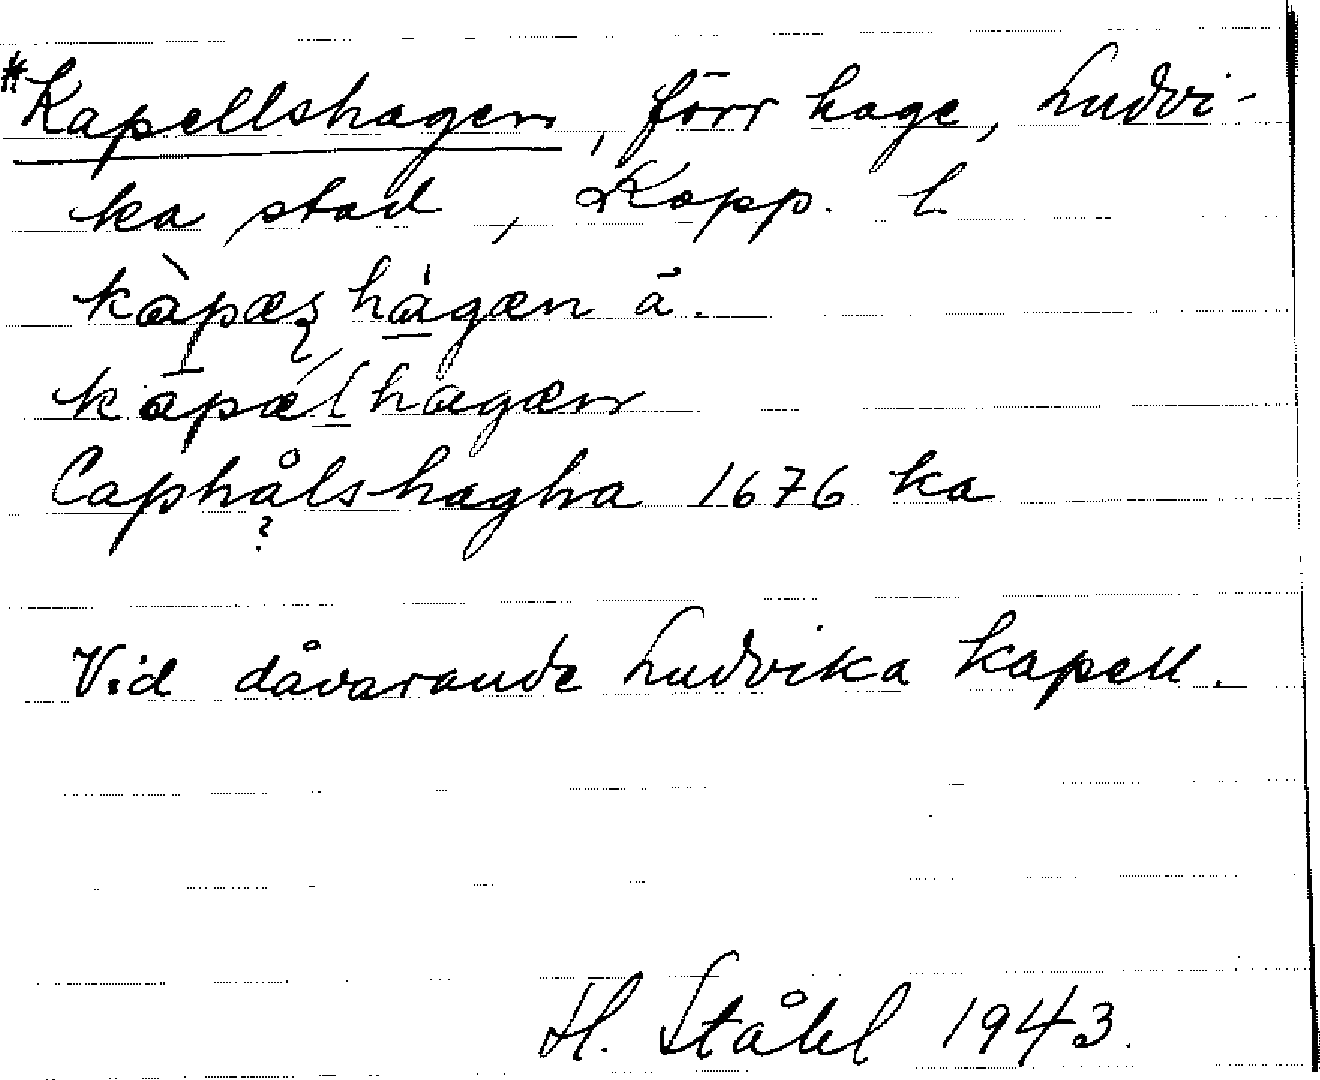 *Kapellshagen, förr hage, Ludvi-
ka stad, Kopp. l.
kàpæʂhágæn ä.
kapælhagæn
Caphålshagha 1676 ka
?
Vid dåvarande Ludvika kapell.
H. Ståhl 1943.